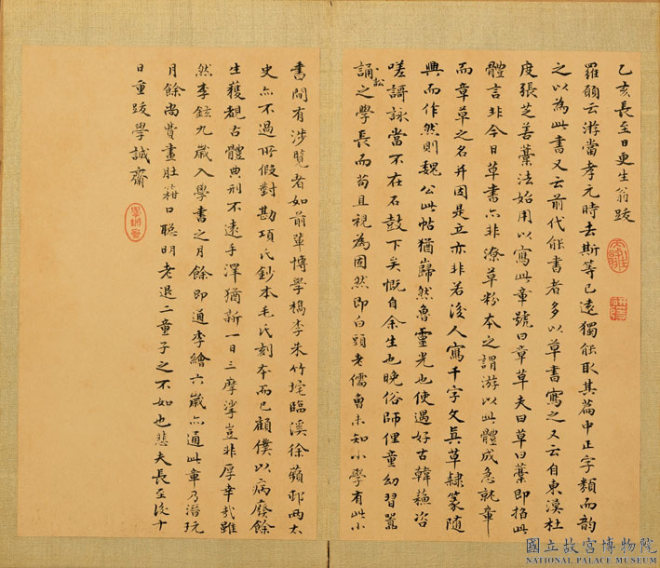 乙亥長至日更生翁跋
羅願云游當孝元時去斯等已遠獨能取其篇中正字類而韵
之以為此書又云前代能書者多以草書寫之又云自東漢杜
度張芝善藁法始用以寫此章號曰章草夫曰草曰藁即指此
體言非今日草書亦非潦草粉本之謂游以此體成急就章
而章草之名并因是立亦非若後人寫千字文真草隸篆随
興而作然則魏公此帖猶巋然魯靈光也使遇好古韓穐咨
嗟謌詠當不在石鼓下矣慨自余生也晚俗師俚童幼習蒿
誦之學長而苟且視為固然即白頭老儒曾未知小學有此小
松
書間有涉覽者如前草博學檇李朱竹垞臨溪徐蘋邨兩太
史亦不過所假對勘項氏鈔本毛氏刻本而已顧僕以病廢餘
生獲覩古體典刑不遠手澤猶新一日三摩挲豈非厚幸哉雖
然李鉉九歲入學書之月餘即通李繪六歲亦通此章乃潜玩
月餘尚費畫肚籀口聰明老退二童子之不如也悲夫長至後十
日重跋學誠齋
國立故宮博物院
NATIONAL PALACE MUSEUM